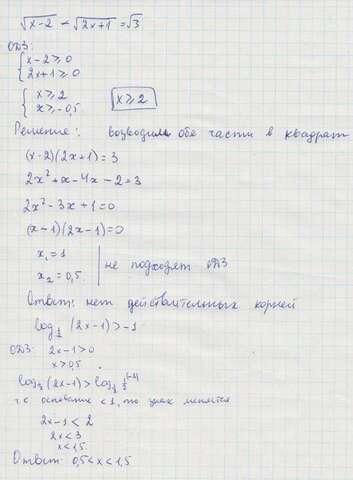 √x-2 · √2x+1 = √3
ОДЗ:
{ x-2 ≥ 0
{ 2x+1 ≥ 0
{ x ≥ 2
{ x ≥ -0,5. x ≥ 2
Решение: возводим обе части в квадрат
(x-2)(2x+1)=3
2x²+x-4x-2=3
2x²-3x+1=0
(x-1)(2x-1)=0
x₁=1
x₂=0,5. не подходят ОДЗ
Ответ: нет действительных корней
log 1/2 (2x-1)>-1
ОДЗ: 2x-1>0
x>0,5.
(2x-1)>
т.к основание <1, то знак меняется
2x-1<2
2x<3
x<1,5.
Ответ: 0,5<x<1,5